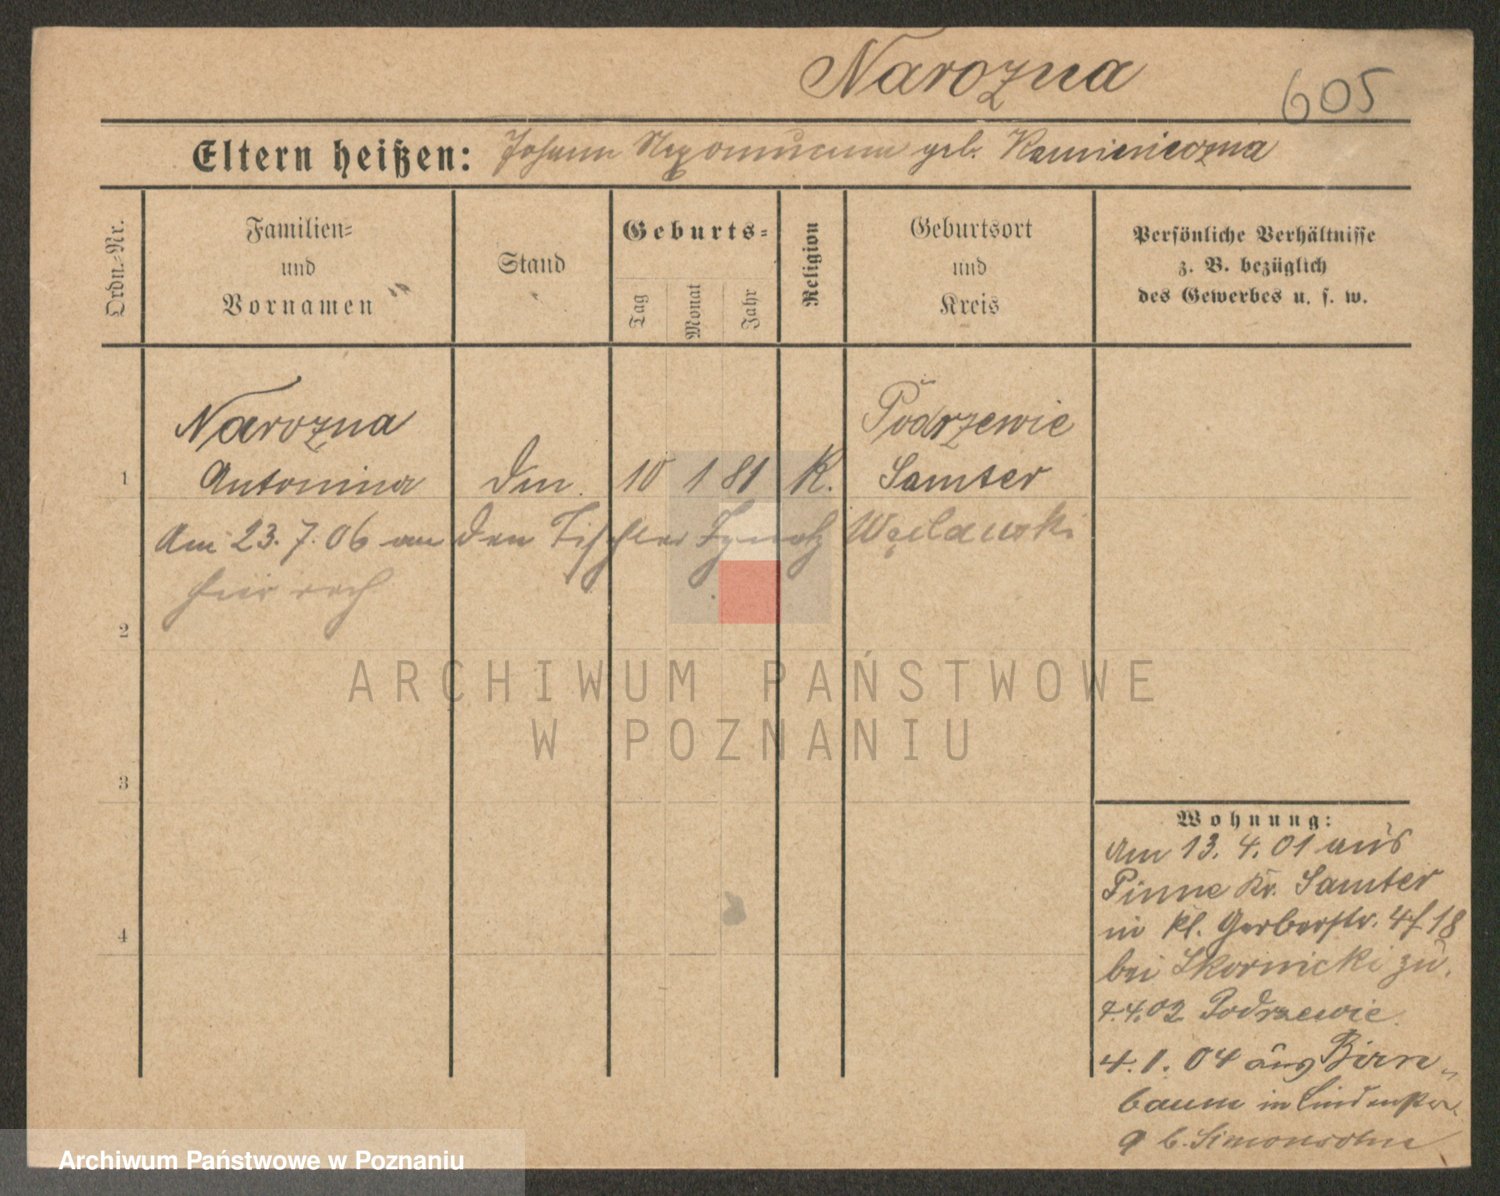 Narozna
605
Eltern heißen: Johann Nepomucena geb. Kamienieczna
Ordn.-Nr.
Familien- und Vornamen
Stand
Geburts-
Tag
Monat
Jahr
Religion
Geburtsort und Kreis
Persönliche Verhältnisse z. B. bezüglich des Gewerbes u. s. w.
Narozna
Podrzewie
1 Antonina 10 1 81 K. Samter
Am 23.7.06 an den Tischler Ignatz Węclawski
hier verh
2
ARCHIWUM PAŃSTWOWE
W POZNANIU
3
4
Wohnung:
Am 13. 4. 01 aus
Pinne Kr. Samter
in kl. Gerberstr. 18
bei Skornicki zu.
4.02 Podrzewie
4.1.04 aus Birn-
baum in Lindenstr.
9 b. Simonsohn
Archiwum Państwowe w Poznaniu